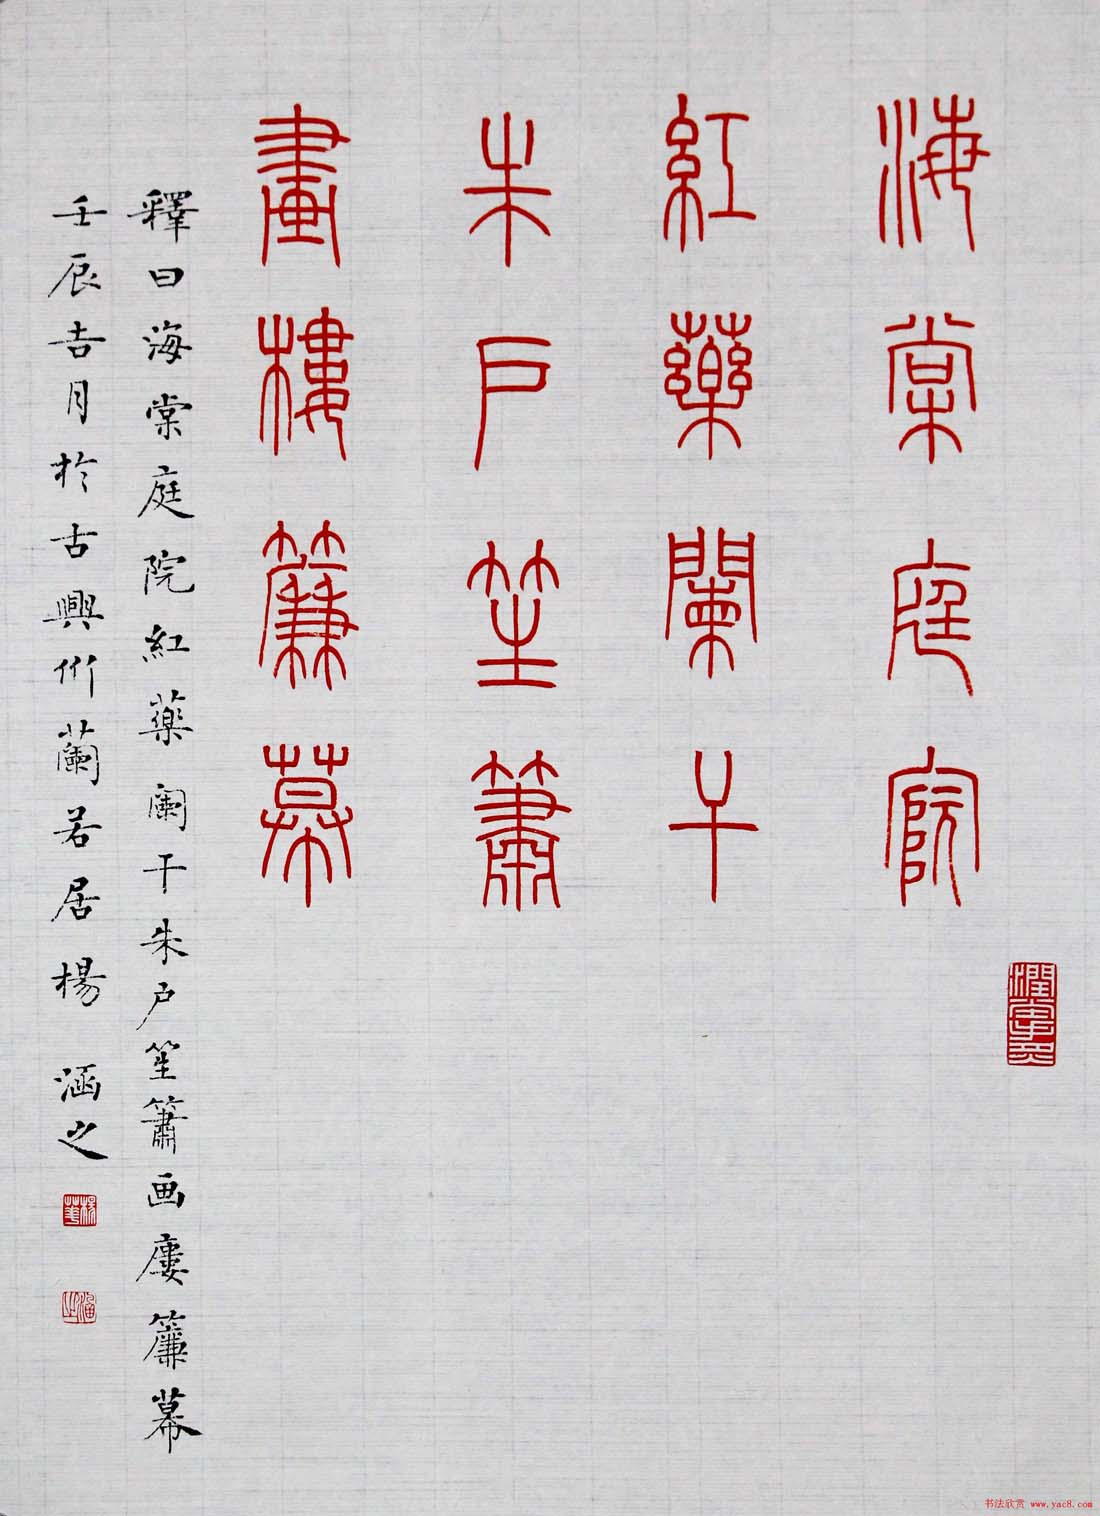 海棠庭院
紅藥闌干
朱戶笙簫
畫樓簾幕
釋曰海棠庭院紅藥闌干朱户笙簫画廔簾幕
壬辰吉月於古興州蘭若居楊涵之
涵之
书法欣赏 www.yac8.com